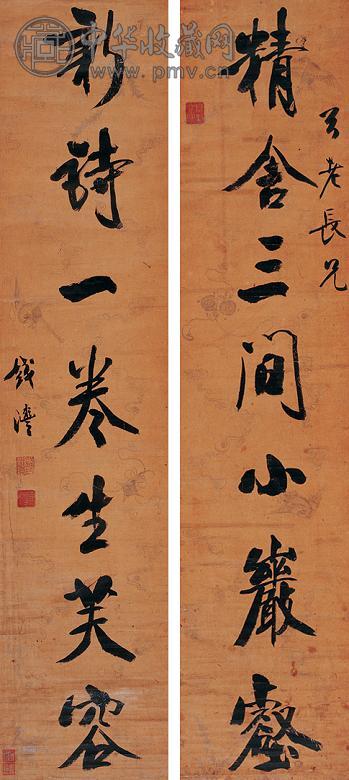 中华收藏网
www.pmv.cn
老長兄
精舍三間小巖壑
新詩一卷生芙容
錢灃